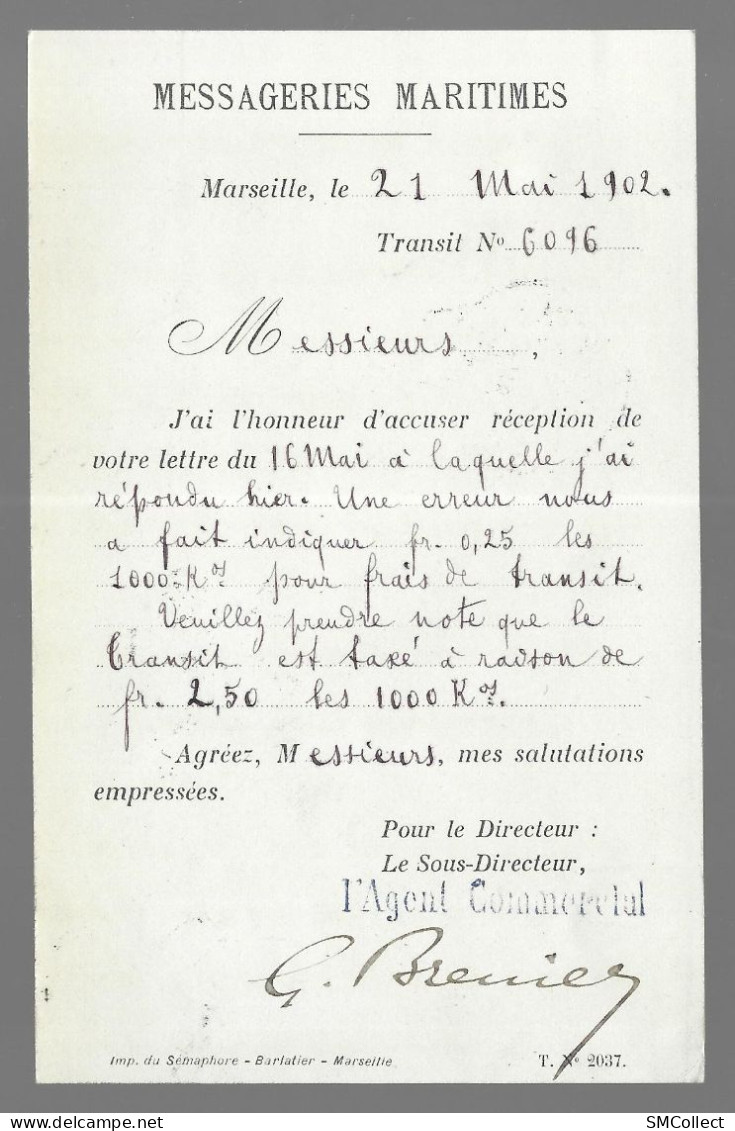 MESSAGERIES MARITIMES
Marseille, le 21 Mai 1902.
Transit Nº 6096
Messieurs,
J'ai l'honneur d'accuser réception de
votre lettre du 16 Mai à laquelle j'ai
répondu hier. Une erreur nous
a fait indiquer fr. 0,25 les
1000 Kos pour frais de transit.
Veuillez prendre note que le
transit est taxé à raison de
fr. 2,50 les 1000 Kos.
Agréez, Messieurs, mes salutations
empressées.
Pour le Directeur :
Le Sous-Directeur,
l'Agent Commercial
G. Brenier
Imp. du Sémaphore - Barlatier - Marseille T. Nº 2037.
SMCollect